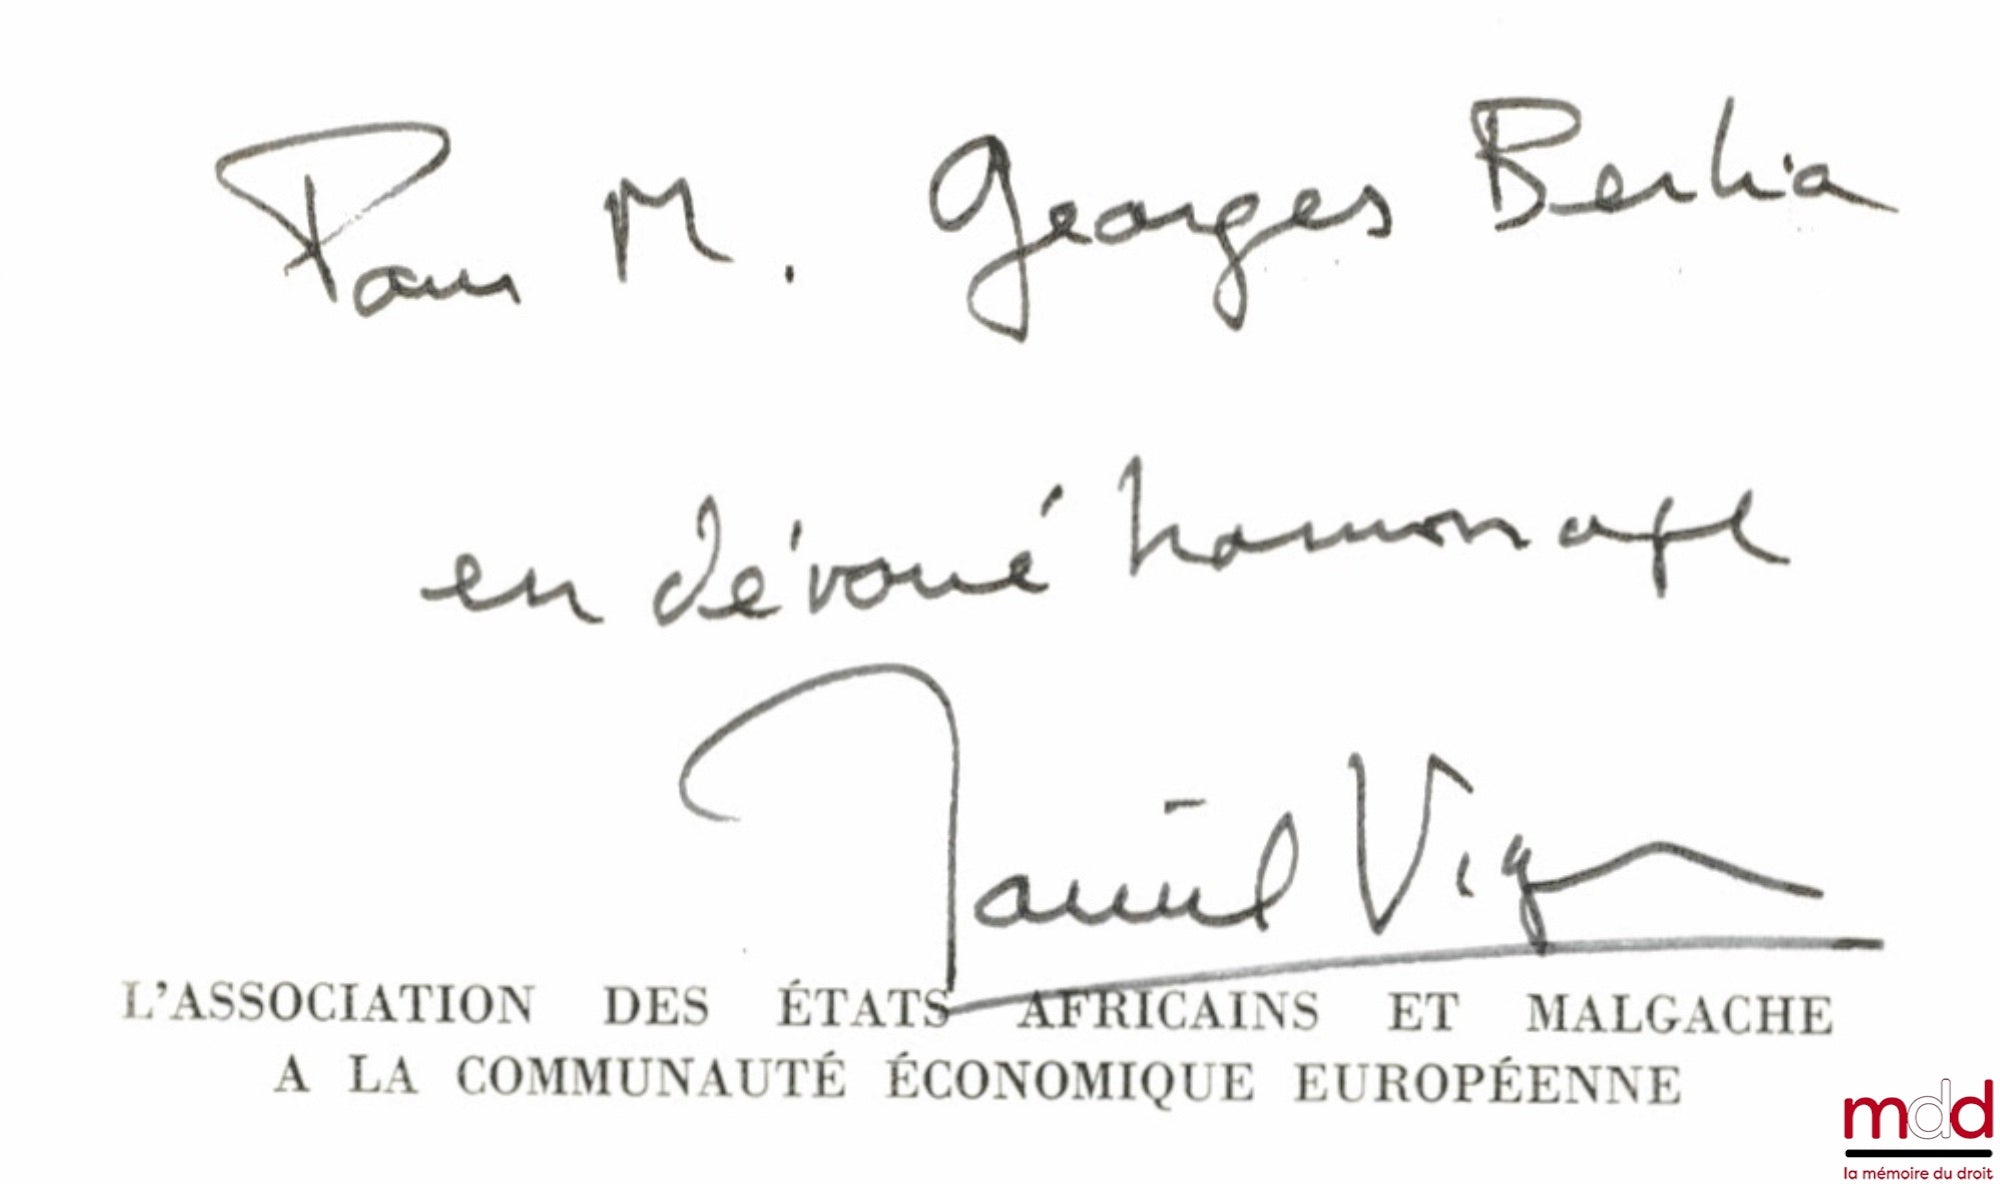 Pour M. Georges Berlia
en dévoué hommage
Daniel Vignes
L'ASSOCIATION DES ÉTATS AFRICAINS ET MALGACHE
A LA COMMUNAUTÉ ÉCONOMIQUE EUROPÉENNE
mdd
la mémoire du droit